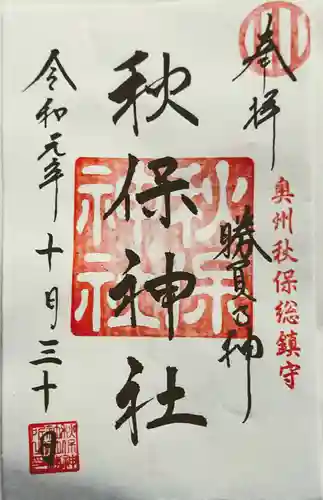 奉拝
奥州秋保総鎮守
勝負の神
秋保神社
秋保神社
令和元年十月三十日